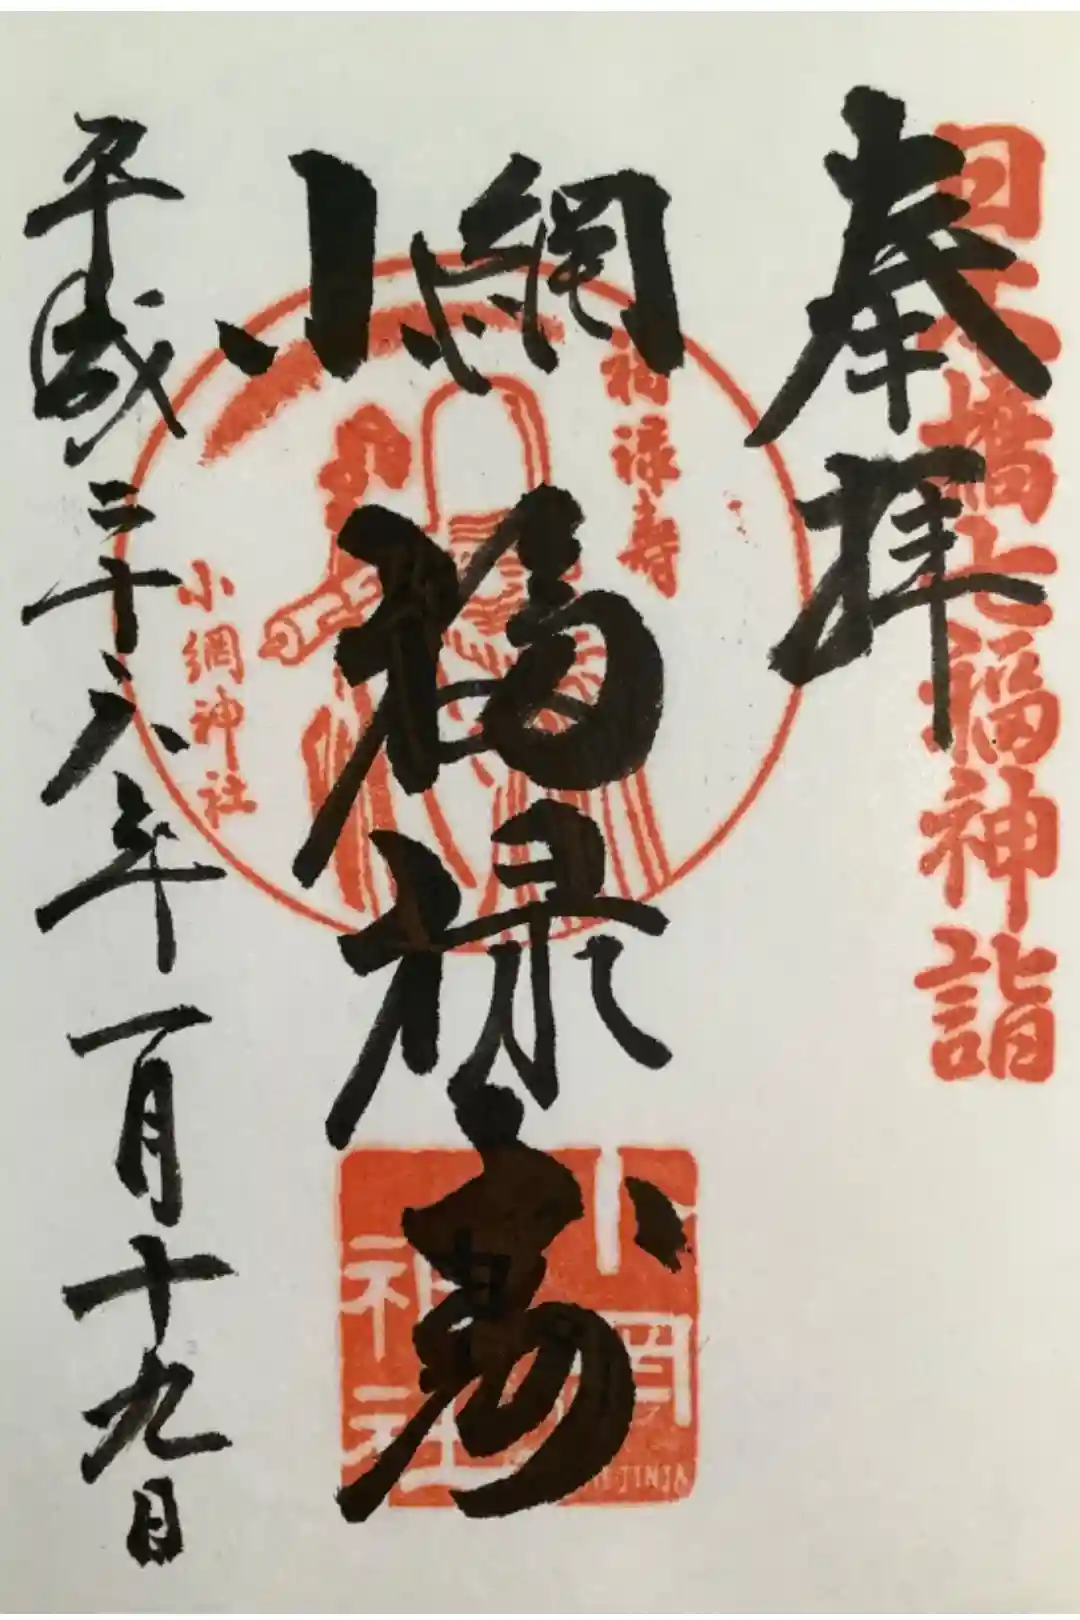 日本橋七福神詣
奉拝
福禄寿
小網
福禄寿
小網神社
小網
神社
JINJA
平成二十八年一月十九日